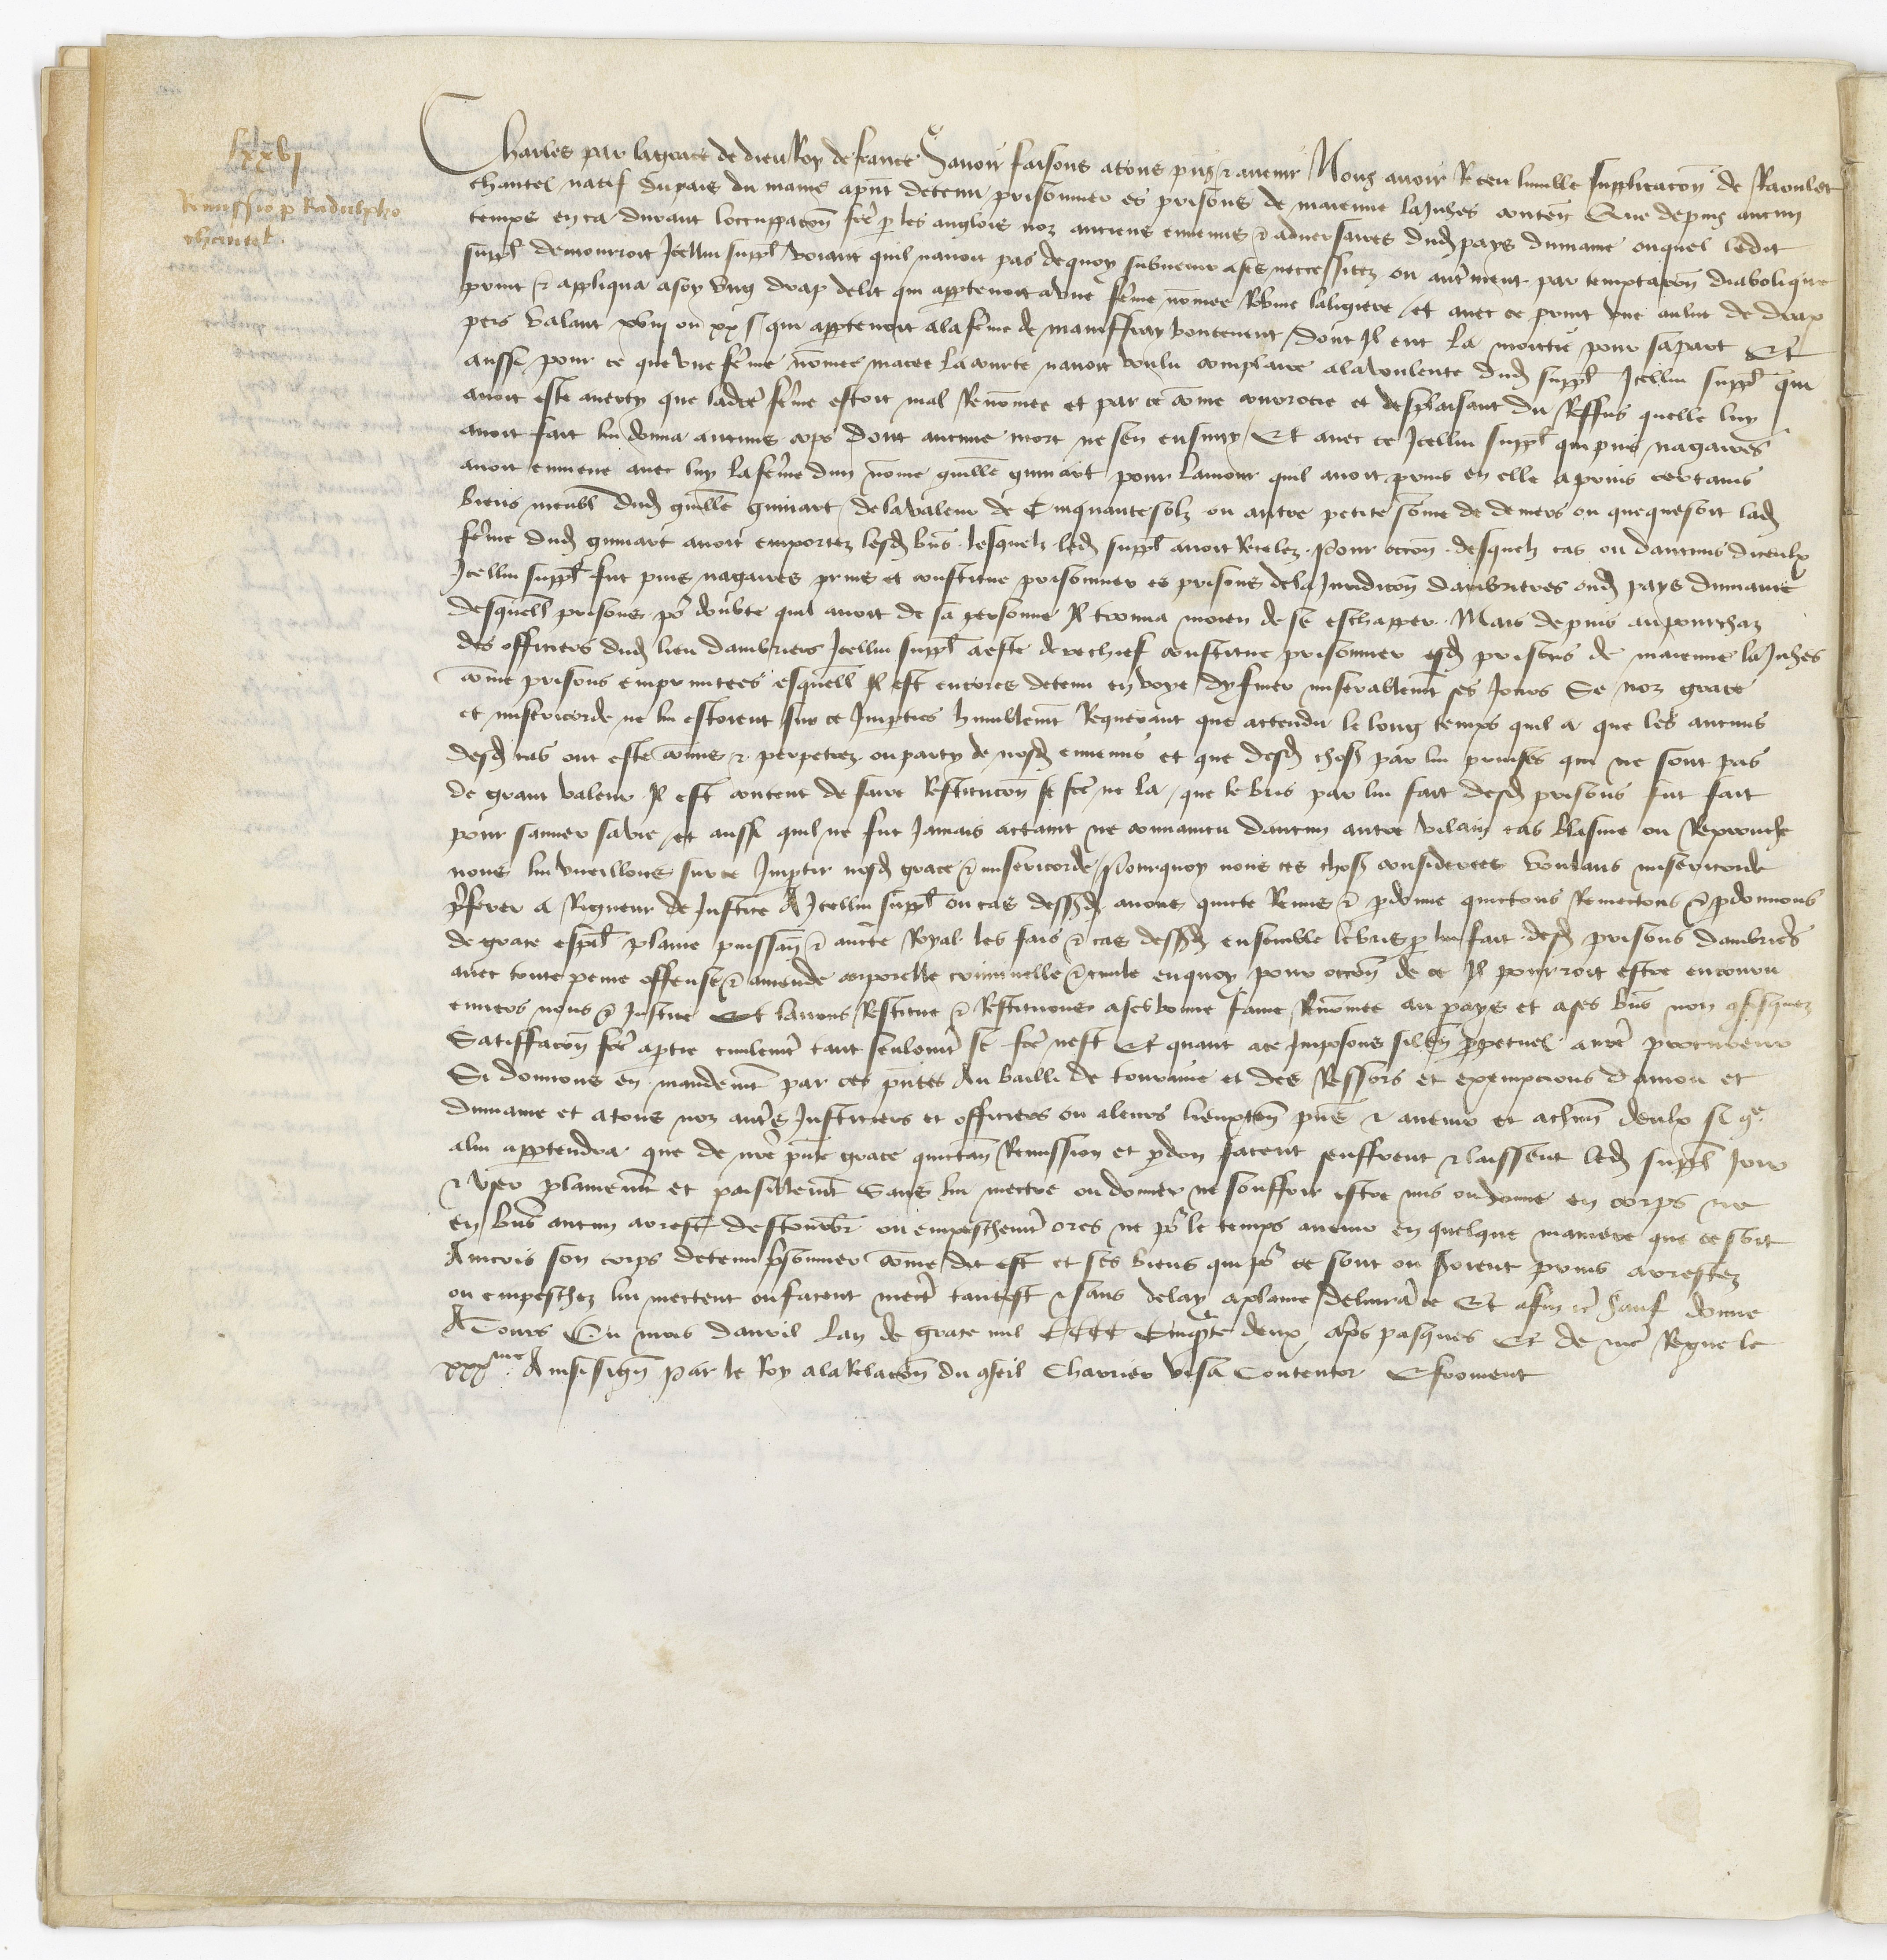 lxxvj
Remissio p Radulpho
chantel.
Charles par la grace de dieu Roy de france Savoir faisons a tous pns et avenir Nous avoir Receu lumble supplicacon de Raoulet
chantel natif du pais du maine apnt detenu prisonnier es prisons de maienne la Juhes conten Que depuis aucun
temps en ca durant loccuppacon fce p les anglois noz anciens ennemis et adversaires dud pays du maine ouquel ledit
suppl demouroit Icellui suppl voiant quil navoit pas dequoy subvenir a ses neccessitez ou autment par temptacon diabolique
print et appliqua a soy ung drap de lit qui apptenoit a une feme nomee Robine laligiere et avec ce print une aulne de drap
pers valant xviij ou xx s qui apptenoit a la feme de mainffray bontenent dont Il eut la moictie pour sa part Et
aussi pour ce que une feme nomee macee la courte navoit voulu complaire a la voulente dud suppl Icellui suppl qui
avoit este averty que ladce feme estoit mal Renomee et par ce come couroucie et desplaisant du Reffus quelle luy
avoit fait lui donna aucuns cops dont aucune mort ne sen ensuivy Et avec ce Icellui suppl qui puis nagaires
avoit enmene avec luy la feme dun nome guille guinart pour lamour quil avoit prins en elle a prins certains
biens meubl dud guille guinart de la valeur de Cinquante solz ou autre petite some de deniers ou que que soit lad
feme dud guinart avoit emportez lesd bns lesquelz led suppl avoit Recelez Pour occon desquelz cas ou daucuns diceulx
Icellui suppl fut puis nagaires prins et constitue prisonnier es prisons de la Juridicon dambrieres oud pays du maine
desquell prisons po doubte quil avoit de sa personne Il trouva moien de se eschapper Mais depuis au pourchaz
des officiers dud lieu dambriers Icellui suppl a este derechief constitue prisonnier esd prisons de maienne la Juhes
come prisons empruntees esquell Il est encores detenu en voye dy finer miserablemt ses Jours Se noz grace
et misericorde ne lui estoient sur ce Imparties humblemt Requerant que actendu le long temps quil a que les aucuns
desd cas ont este comis et perpetrez ou party de nosd ennemis et que desd chos par lui prinses qui ne sont pas
de grant valeur Il est content de faire Restitucon se fce ne la que le bris par lui fait desd prisons fut fait
pour sauver sa vie et aussi quil ne fut Jamais actaint ne convaincu daucun autre vilain cas blasme ou Reprouche
nous lui vueillons sur ce Impartir nosd grace et misericorde Pourquoy nous ces chos considerees Voulans misericorde
preferer a Rigueur de Justice A Icellui suppl ou cas dessusd avons quicte Remis et pdonne quictons Remectons et pdonnons
de grace espal plaine puissan et aucte Royal les fais et cas dessusd ensemble le bris p lui fait desd prisons dambrieres
avec toute peine offense et amende corporelle criminelle et civile enquoy pour occon de ce Il pourroit estre encouru
envers nous et Justice Et lavons Restitue et Restituons a ses bonne fame Renomee au pays et a ses bns non cfisquez
Satiffacon fce aptie civilemt tant seulemt se fce nest Et quant a ce Imposons silen ppetuel a nre procureur
Si donnons en mandemt par ces pntes Au bailli de touraine et des Ressors et exempcions damou et
du maine et a tous noz autres Justiciers et officiers ou a leurs lieuxten pns et avenir et a chun deulx si c
a lui apptendra que de nre pnte grace quictan Remission et pdon facent seuffrent et laissent led suppl Joir
et user plainemt et paisiblemt sans lui mectre ou donner ne souffrir estre mis ou donne en corps ne
en bns aucun arrest destourbr ou empeschemt ores ne po le temps avenir en quelque maniere que ce soit
Aincois son corps detenu prisonnier come dit est et ses biens qui po ce sont ou seroient prins arrestez
ou empeschez lui mectent ou facent mectre tantost et sans delay a plaine delivrace Et afin etc Sauf Donne
A Tours Ou mois davril Lan de grace mil CCCC Cinquate deux apres pasques Et de nre Regne le
xxxme Ainsi sign Par le Roy a la Relacon du cseil Charrier visa Contentor E froment